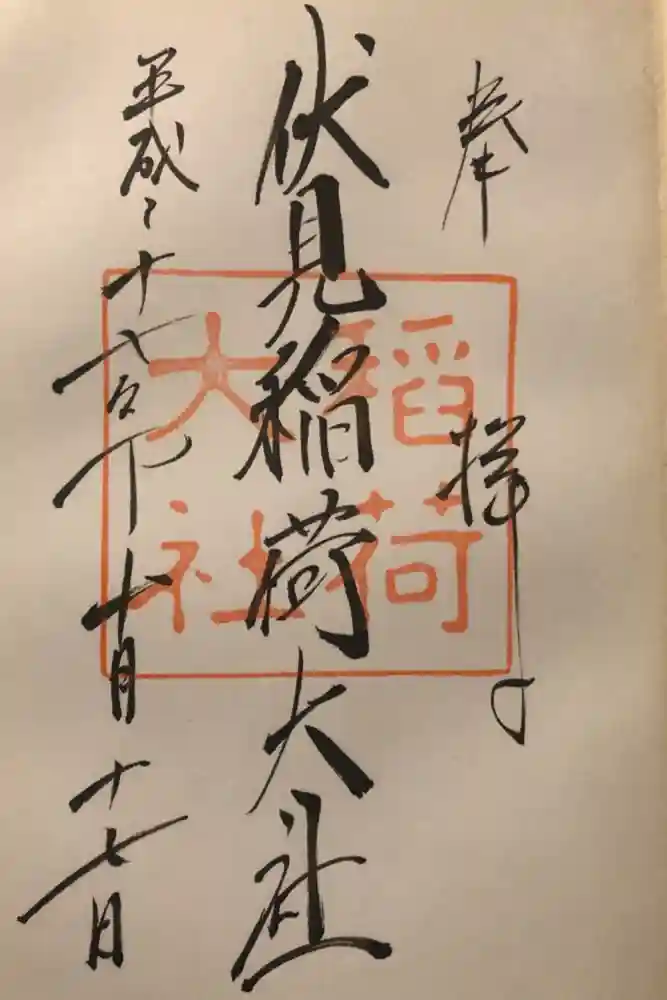 奉拝
伏見稲荷大社
平成二十年十月十七日
稲荷
大社